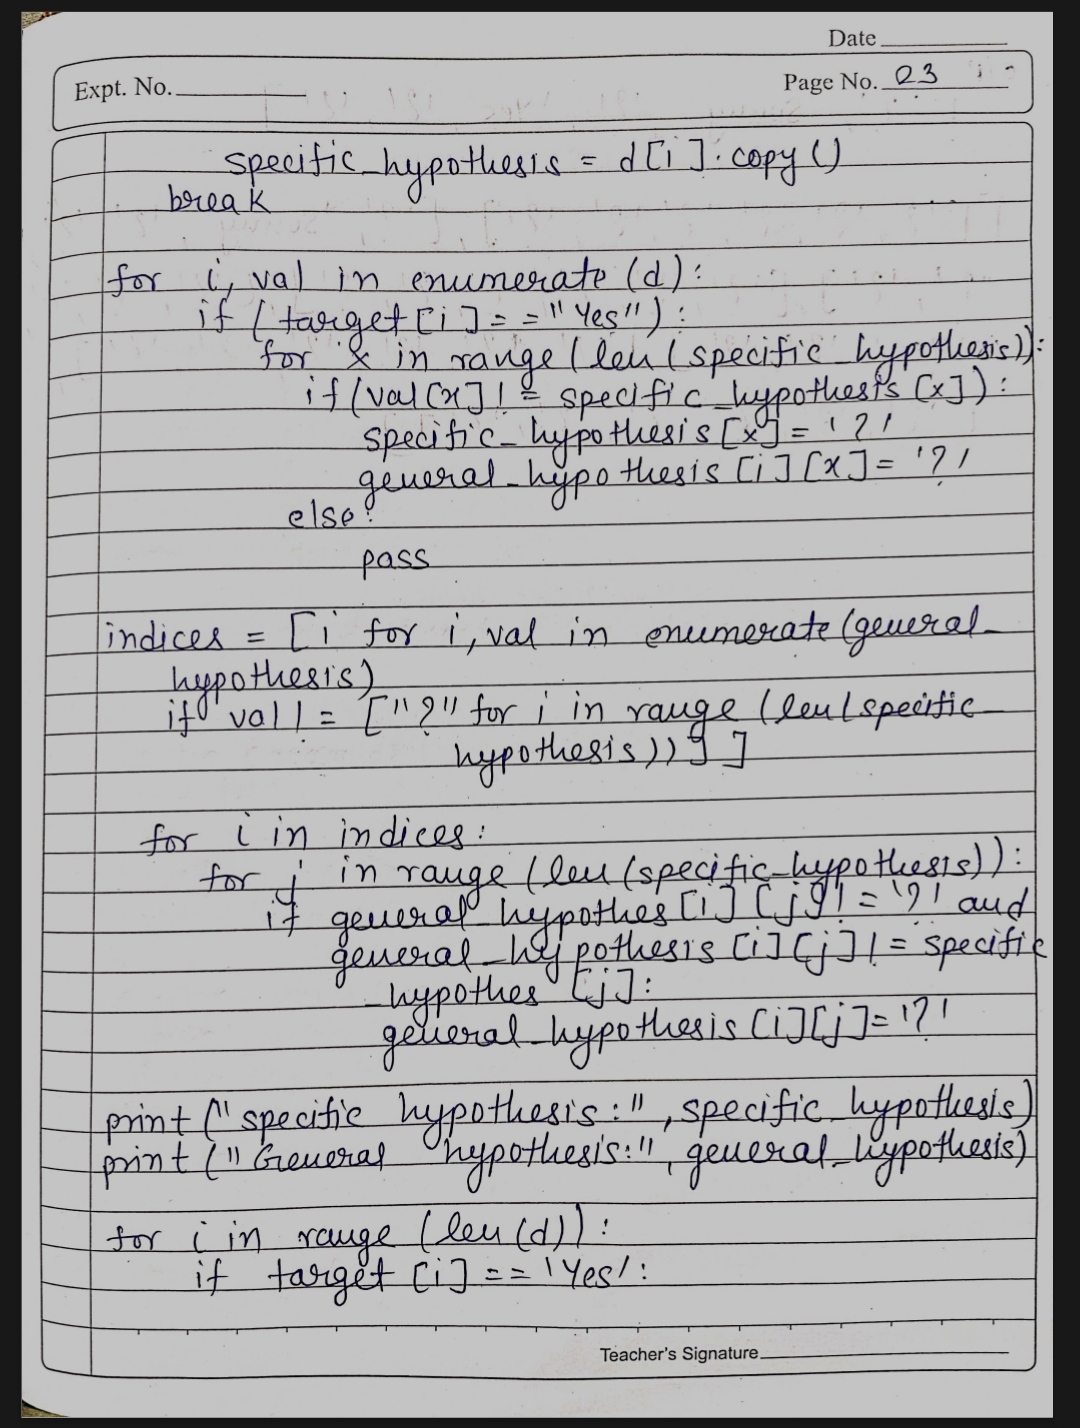 Date
Expt. No.
Page No. 03
specific_hypothesis = d[i].copy()
break
for i, val in enumerate (d):
if (target[i] == "Yes"):
for x in range (len (specific_hypothesis)):
if (val[x] != specific_hypothesis [x]):
specific_hypothesis [x] = '?'
general_hypothesis [i][x] = '?'
else:
pass
indices = [i for i, val in enumerate (general_
hypothesis)
if val != ["?" for i in range (len(specific_
hypothesis))] ]
for i in indices:
for j in range (len (specific_hypothesis)):
if general_hypothes [i][j] != '?' and
general_hypothesis [i][j] != specific
_hypothes [j]:
general_hypothesis [i][j] = '?'
print ("specific hypothesis:", specific_hypothesis)
print ("General hypothesis:", general_hypothesis)
for i in range (len (d)):
if target [i] == 'Yes':
Teacher's Signature